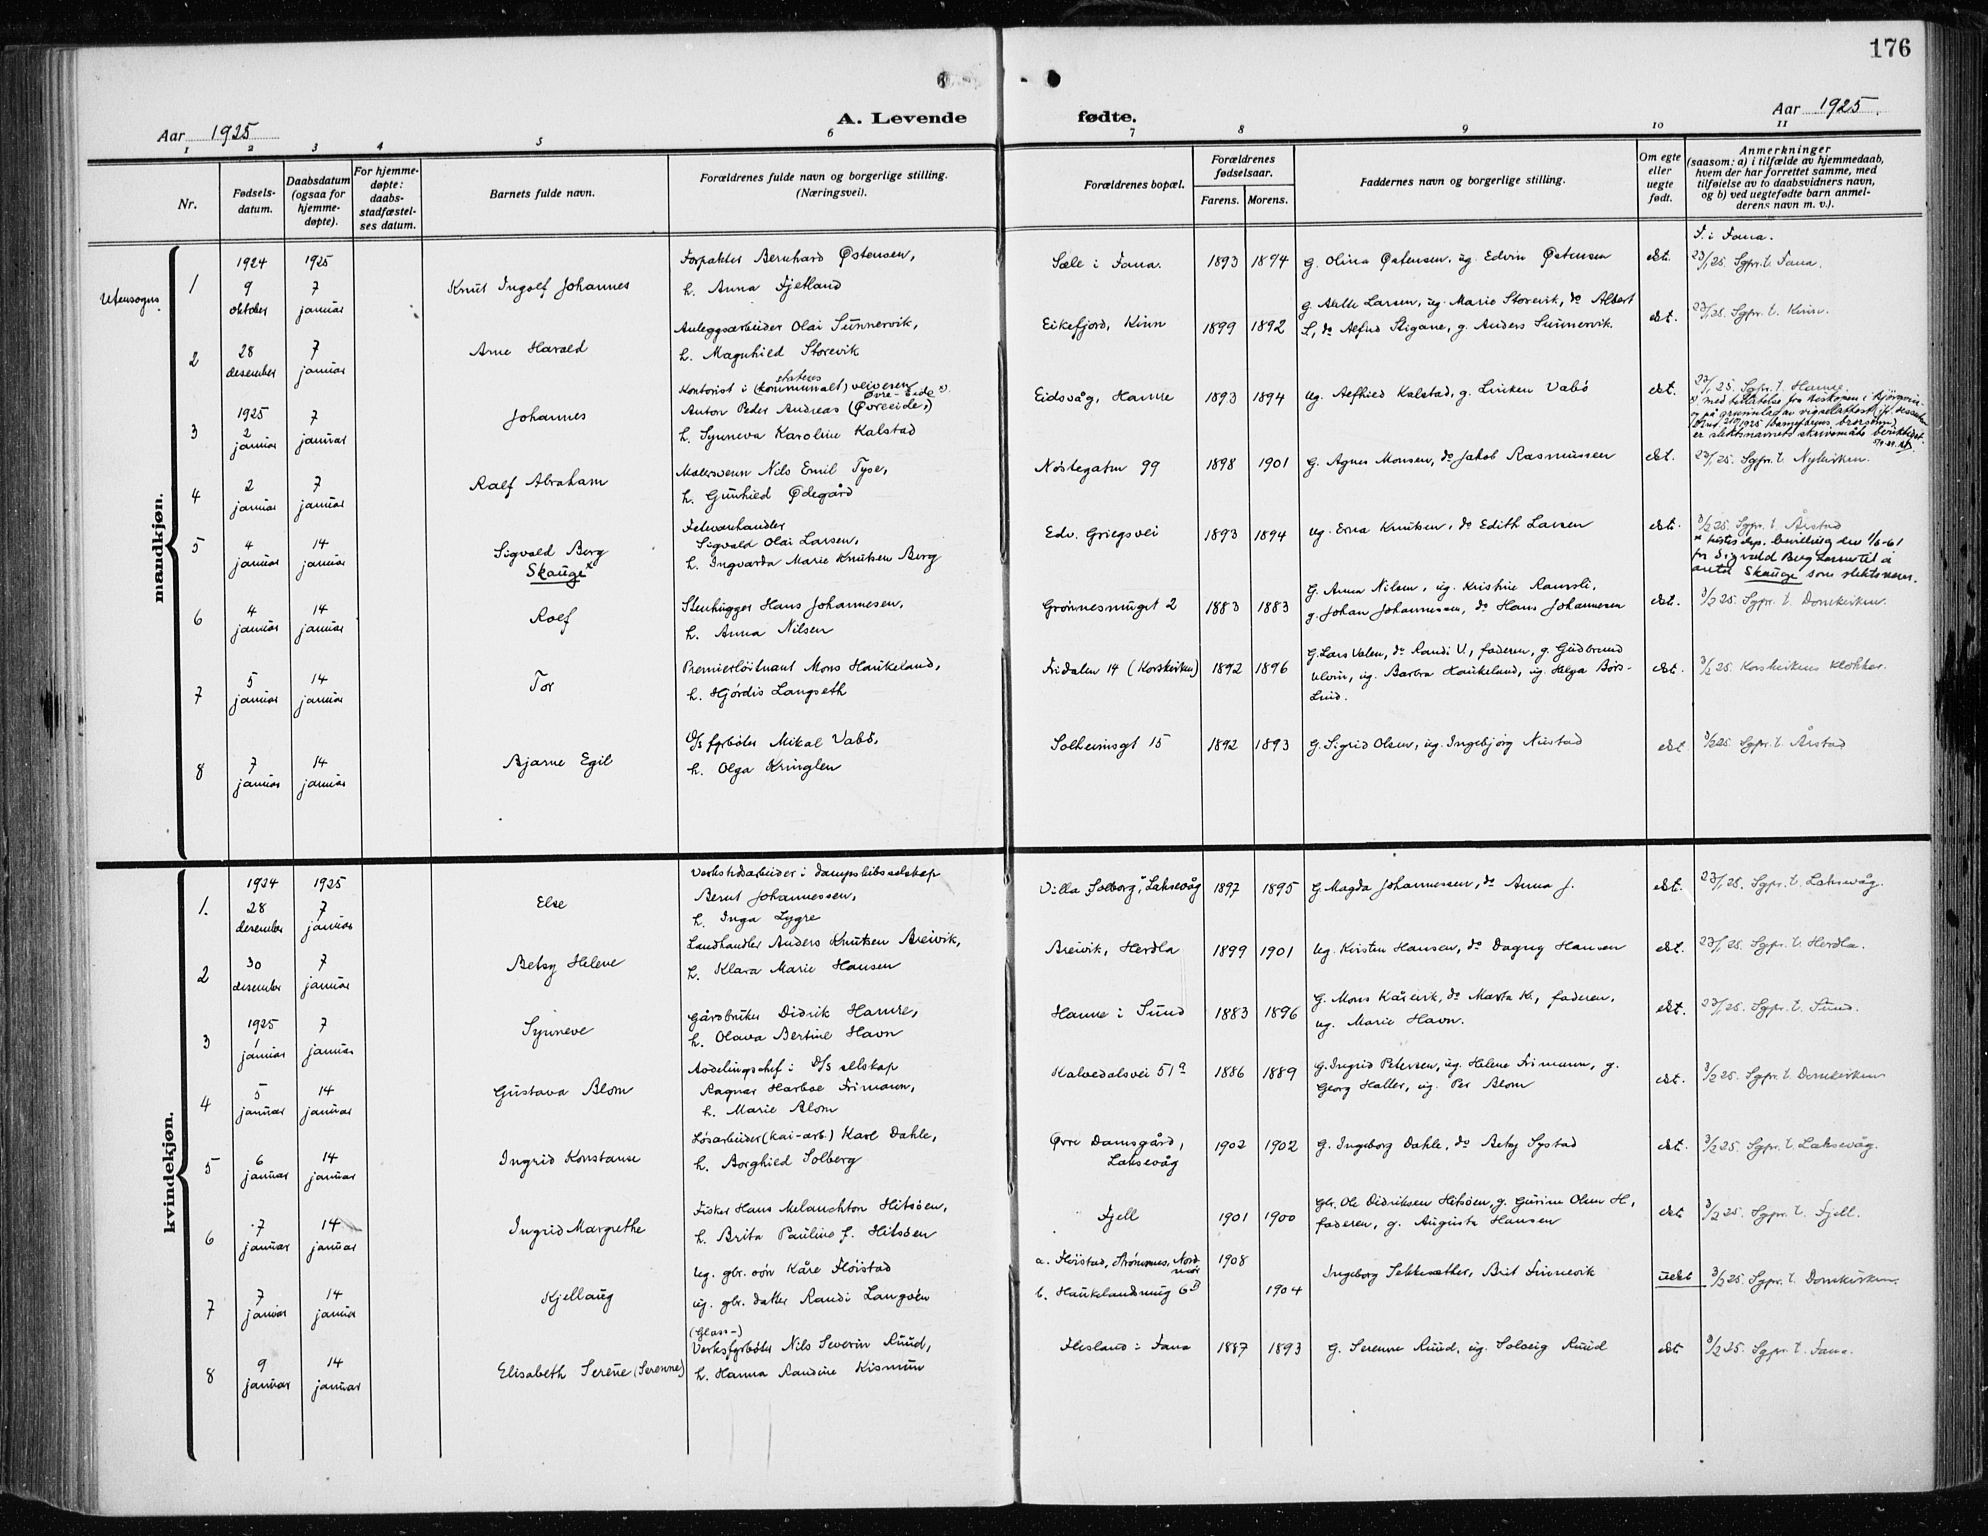 176
Aar 1925
A. Levende fødte.
Aar 1925.
1 2 3 4 5 6 7 8 9 10 11
Nr.
Fødsels-
datum.
Daabsdatum
(ogsaa for
hjemme-
døpte).
For hjemme-
døpte:
daabs-
stadfæstel-
ses datum.
Barnets fulde navn.
Forældrenes fulde navn og borgerlige stilling.
(Næringsvei).
Forældrenes bopæl.
Forældrenes
fødselsaar.
Farens. Morens.
Faddernes navn og borgerlige stilling.
Om egte
eller
uegte
født.
Anmerkninger
(saasom: a) i tilfælde av hjemmedaab,
hvem der har forrettet samme, med
tilføielse av to daabsvidners navn,
og b) ved uegtefødte barn anmel-
derens navn m. v.).
mandkjøn.
Utensogns
1
1924
9
oktober
1925
7
januar
Knut Ingolf Johannes
Forpakter Bernhard Østensen,
h. Anna Fjetland
Sæle i Fana.
1893 1894
g. Olina Østensen, ug. Edvin Østensen
ekt.
F. i Fana.
23/1 25. Sgpr. t. Fana.
2
28
desember
7
januar
Arne Harald
Anleggsarbeider Olai Sunnervik,
h. Magnhild Storevik
Eikefjord, Kinn
1899 1892
g. Larsen, ug. Marie Storevik, do Albert
L, do Alfred Stigane, g. Anders Sunnervik.
ekt.
23/1 25. Sgpr. t. Kinn.
3
1925
2
januar
7
januar
Johannes
Kontorist i (kommunalt) statens veivesen
Øvre-Eide x)
Anton Peder Andreas (Øvreeide,)
h. Synneva Karoline Kalstad
Eidsvåg, Hamre
1893 1894
ug. Alfhild Kalstad, g. Linken Vabø
ekt.
23/1 25. Sgpr. t. Hamre.
x) med tillatelse fra biskopen i Bjørgvin
og på grunnlag av vigselattest
er slektsnavnets skrivemåte beriktiget.
4
2
januar
7
januar
Ralf Abraham
Malersvenn Nils Emil Tyse,
h. Gunhild Ødegård
Nøstegaten 99
1898 1901
g. Agnes Monsen, do Jakob Rasmussen
ekt.
23/1 25. Sgpr. t. Nykirken.
5
4
januar
14
januar
Sigvald Berg
Skauge x
Fetevarehandler
Sigvald Olai Larsen,
h. Ingvarda Marie Knutsen Berg
Edv. Griegsvei
1893 1894
ug. Erna Knutsen, do Edith Larsen
ekt.
3/2 25. Sgpr. t. Årstad
x Justisdep. bevilling den 1/6-61
for Sigvald Berg Larsen til å
anta Skauge som slektsnavn.
6
4
januar
14
januar
Rolf
Stenhugger Hans Johannesen,
h. Anna Nilsen
Grønnesmuget 2
1883 1883
g. Anna Nilsen, ug. Kristine Ramsli,
g. Johan Johannessen, do Hans Johannesen
ekt.
3/2 25. Sgpr. t. Domkirken.
7
5
januar
14
januar
Tor
Premierløitnant Mons Haukeland,
h. Hjørdis Langseth
Fridalen 14 (Korskirken)
1892 1896
g. Lars Valen, do Randi V., faderen, g. Gudbrand
Ulvin, ug. Barbra Haukeland, ug. Helga Børs-
Lind.
ekt.
3/2 25. Korskirkens klokker.
8
7
januar
14
januar
Bjarne Egil
D/s fyrbøter Mikal Vabø,
h. Olga Kringlen
Solheimsgt 15
1892 1893
g. Sigrid Olsen, ug. Ingebjørg Nustad
ekt
3/2 25. Sgpr. t. Årstad
kvindekjøn.
1.
1924
28
desember
1925
7
januar
Else
Verkstedarbeider i dampskibsselskap
Bernt Johannessen,
h. Inga Lygre
Villa "Solborg", Laksevåg
1897 1895
g Magda Johannessen, do Anna J.
ekt.
23/1 25. Sgpr. t. Laksevåg.
2
30
desember
7
januar
Betsy Helene
Landhandler Anders Knutsen Breivik,
h. Klara Marie Hansen
Breivik, Herdla
1899 1901
ug. Kirsten Hansen, do Dagny Hansen
ekt.
23/1 25. Sgpr. t. Herdla.
3
1925
1
januar
7
januar
Synneve
Gårdbruker Didrik Hamre,
h. Olava Bertine Havn
Hamre i Sund
1883 1896
g. Mons Kårevik, do Marta K., faderen,
ug. Marie Havn.
ekt.
23/1 25. Sgpr. t. Sund.
4
5
januar
14
januar
Gustava Blom
Avdelingschef i D/s selskap
Ragnar Harboe Frimann,
h. Marie Blom
Kalvedalsvei 51a
1886 1889
g. Ingrid Petersen, ug. Helene Frimann, g.
Georg Haller, ug. Per Blom
ekt.
3/2 25. Sgpr. t. Domkirken
5
6
januar
14
januar
Ingrid Konstanse
Løsarbeider (kai-arb.) Karl Dahle,
h. Borghild Solberg
Øvre Damsgård,
Laksevåg
1902 1902
g. Ingeborg Dahle, do Betsy Systad
ekt.
3/2 25. Sgpr. t. Laksevåg.
6
7
januar
14
januar
Ingrid Margrethe
Fisker Hans Melanchton Hitsøen,
h. Brita Pauline f. Hitsøen
Fjell
1901 1900
Gbr. Ole Didriksen Hitsøen, g. Gurine Olsen H,
faderen, g. Augusta Hansen
ekt
3/2 25. Sgpr. t. Fjell.
7
7
januar
14
januar
Kjellaug
Ug. gbr. søn Kåre Fløistad
ug. gbr. datter Randi Langsæter
a. Fløistad, Strømnes, Nord-
møre
b. Haukelandmug 6
1908
1904
Ingeborg Sekkesæther, Brit Finnevik
uekt
3/2 25. Sgpr. t. Domkirken.
8
9
januar
14
januar
Elisabeth Serene (Serenne)
(Glass-)
Verksfyrbøter Nils Severin Ruud,
h. Hanna Randine Kismun
Flesland i Fana
1887 1893
g. Serenne Ruud, ug. Solveig Ruud
ekt
3/2 25. Sgpr. t. Fana.